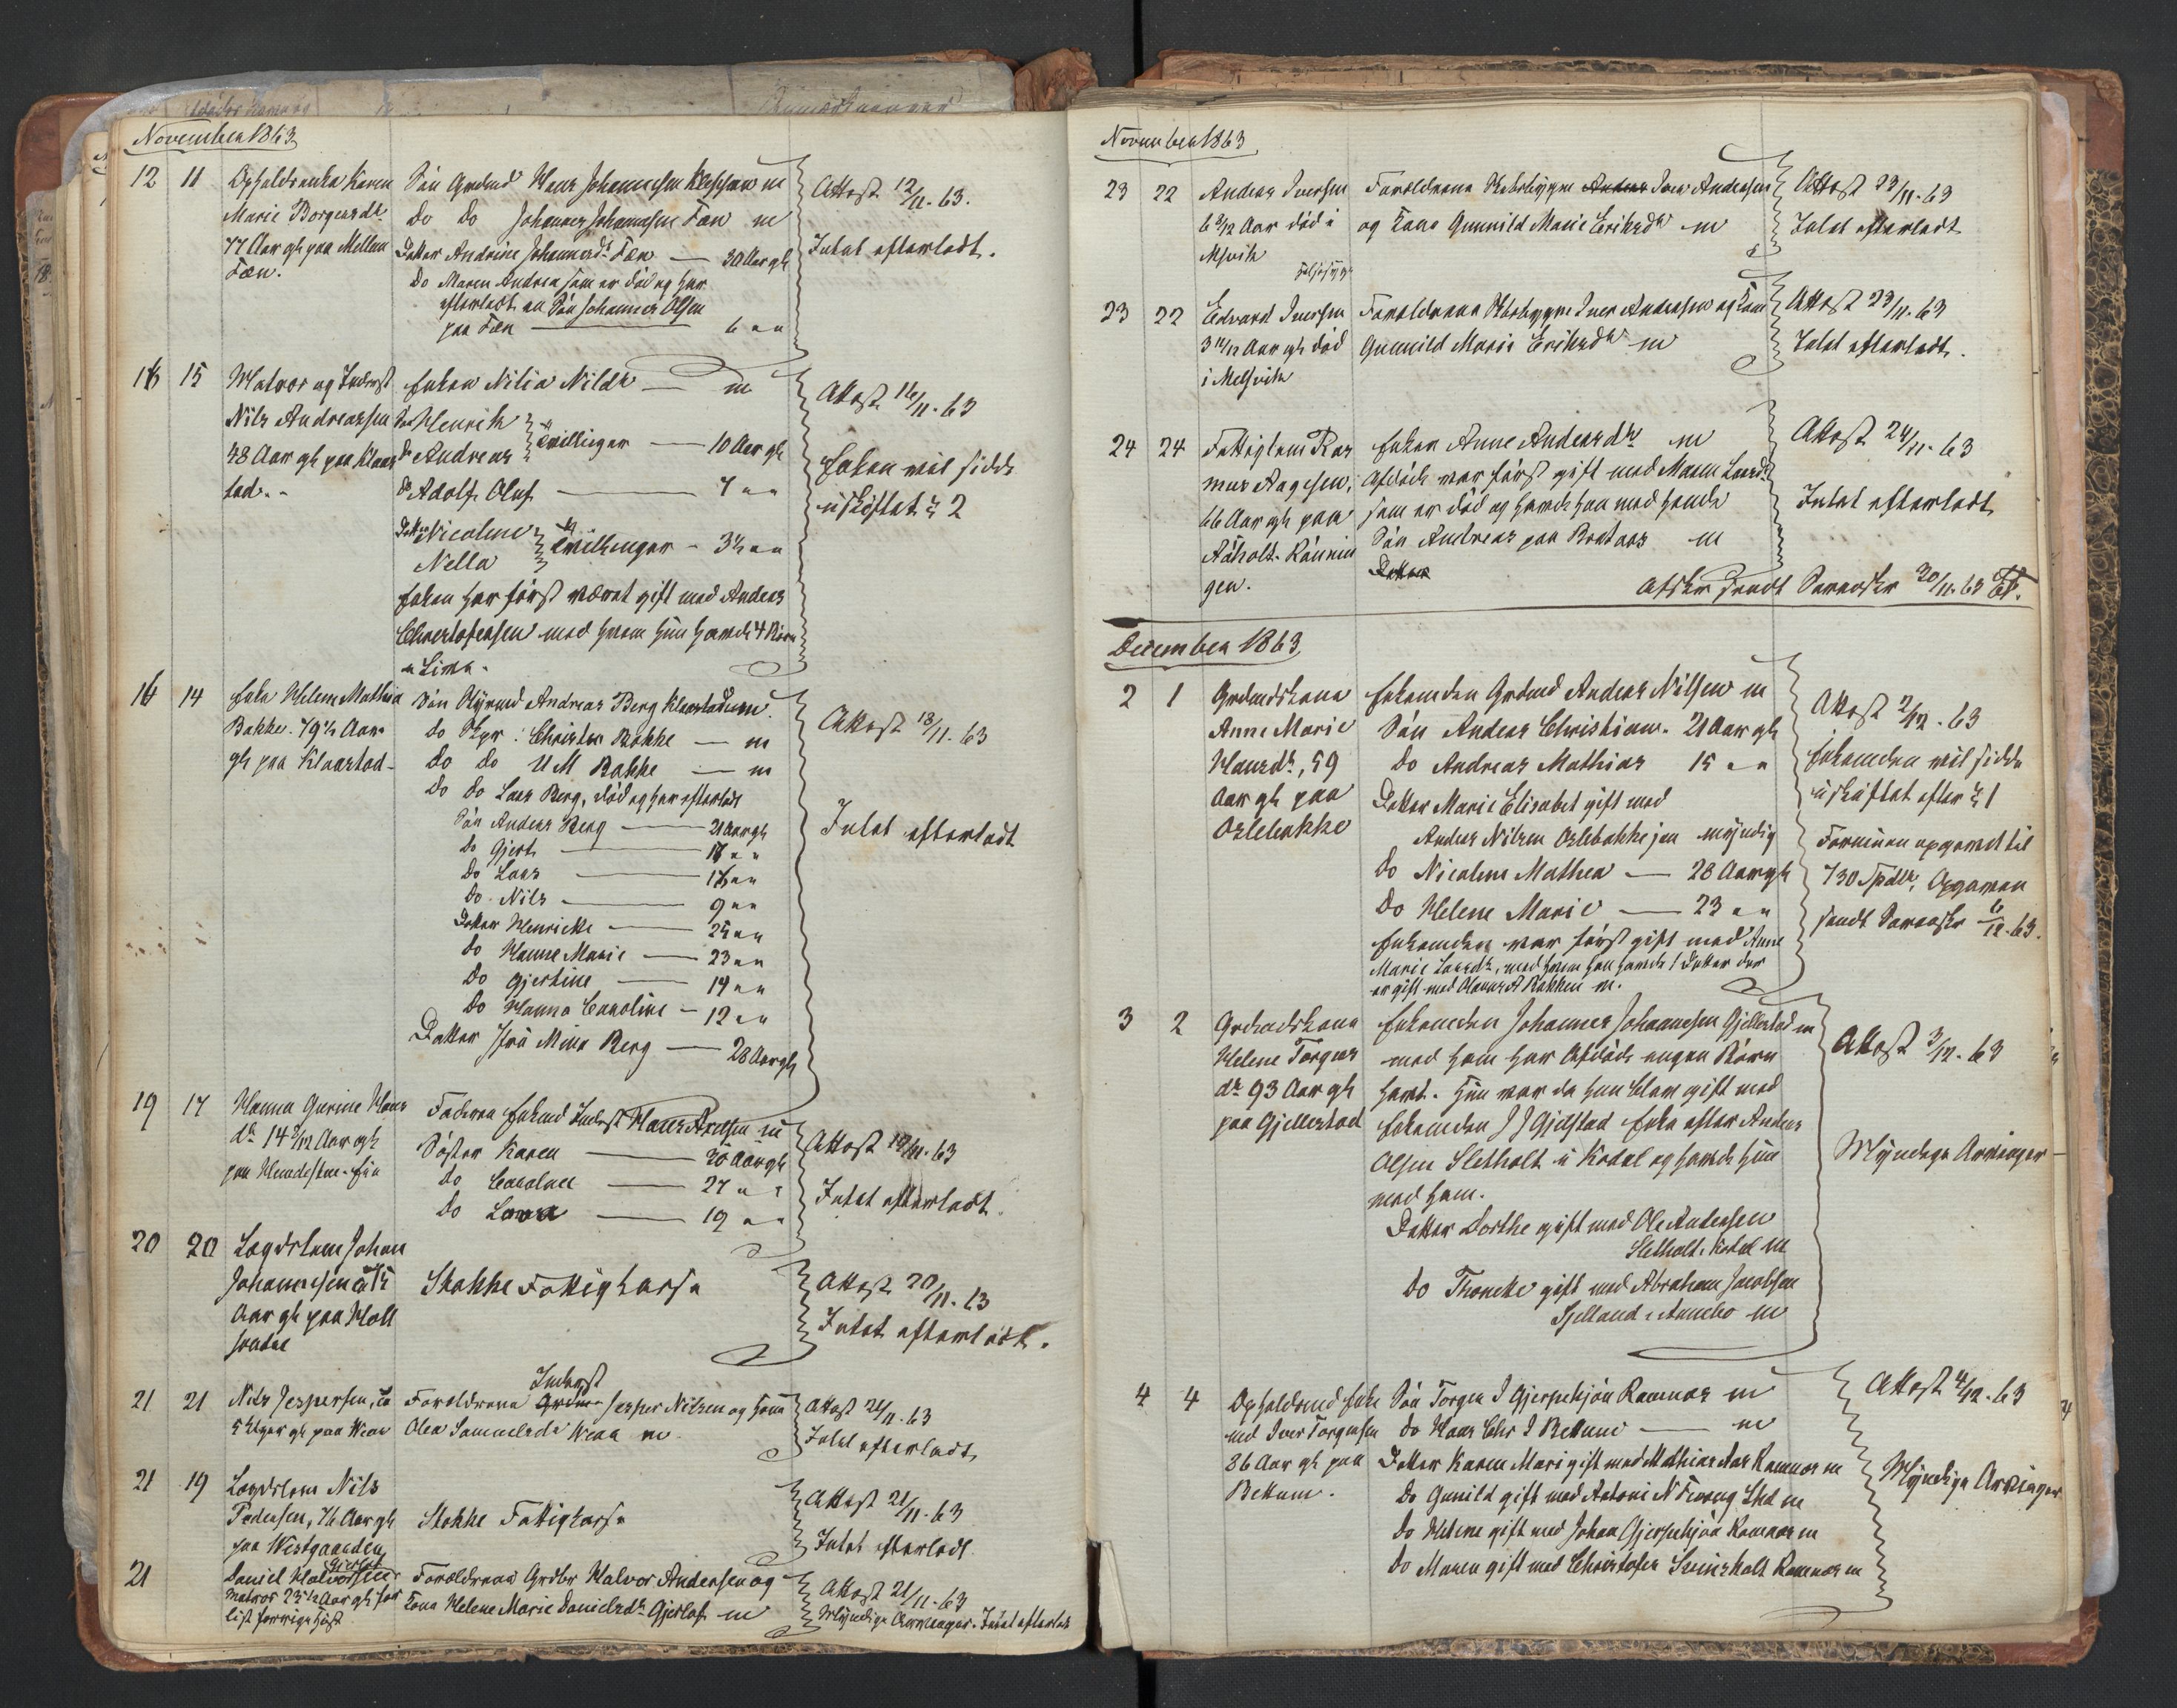 November 1863
12 11 Opholdsenke Karen
Marie Borgersdtr
77 Aar gl. paa Mellem
Fæn.
Søn Grdmd Hans Johannesen Klepsaae m
Do Do Johannes Johannesen Fæn m
Datter Andrine Johannesdr Fæn — 30 Aar gl
Do Maren Andrea som er død og har
efterladt en Søn Johannes Olsen
paa Fæn — 6 " "
Attest 12/11.63.
Intet efterladt.
16 15 Matros og Inderst
Nils Andreassen
48 Aar gl paa Klaas
tad.
Enken Nilia Nilsdr — m
Søn Henrik
Do Andreas } Tvillinger — 10 Aar gl
Do Adolf Oluf — 7 " "
Datter Nicoline
Nella } Tvillinger — 3½ " "
Enken har først været gift med Anders
Christofersen med hvem hun havde 4 Børn
i Live.
Attest 16/11.63
Enken vil sidde
uskiftet § 2
16 14 Enke Helene Mathea
Bakke. 79½ Aar
gl paa Klaastad
Søn Styrmd Andreas Berg Klaastad m.
Do Skpr. Christen Bakke — m
Do Do U M Bakke — m
Do Do Lars Berg, død og har efterladt
Søn Anders Berg — 21 Aar gl
Do Gjert — 18 " "
Do Lars — 15 " "
Do Nils — 9 " "
Datter Henricke — 25 " "
Do Hanne Marie — 23 " "
Do Gjertine — 19 " "
Do Hanna Caroline — 12 " "
Datter Jfr Mina Berg — 28 Aar gl
Attest 18/11.63
Intet efterladt
19 17 Hanna Gurine Hans
dr 14 3/12 Aar gl
paa
Faderen Enkemd Inderst Hans m
Søster Karen — 30 Aar gl
Do Caroline — 27 " "
Do Laura — 19 " "
Attest 19/11.63
Intet efterladt.
20 20 Lægdslem Johan
Johannesen
Aar gl paa
Stokke Fattigkasse
Attest 20/11.63
Intet efterladt.
21 21 Nils Jespersen, ca
5 Uger gl paa Weaa
Inderst
Forældrene Jesper Nilsen og Kone
Olea Samuelsdr Weaa m
Attest 21/11.63
Intet efterladt
21 19 Lægdslem Nils
Pedersen, 76 Aar gl
paa Westgaarden
Stokke Fattigkasse
Attest 21/11.63
Intet efterladt
21 Daniel Halvorsen Gjerløf
Matros 23½ Aar gl for
list forrige Høst
Forældrene Grdbr Halvor Andersen og
Kone Helene Marie Danielsdr Gjerløf m
Attest 21/11.63
Myndige Arvinger. Intet efterladt
November 1863
23 22 Anders Iversen
6 9/12 Aar død i
Melsvik
Forældrene Skibsbygger Anders Iver Andersen
og Kone Gunnild Marie Eriksdr m
Attest 23/11.63
Intet efterladt
23 22 Edvard Iversen
3 11/12 Aar gl død
i Melsvik
Forældrene Skibsbygger Iver Andersen og Kone
Gunnild Marie Eriksdr m
Attest 23/11.63
Intet efterladt.
24 24 Fattiglem Ras
mus Aagesen,
66 Aar gl paa
Aaholt-Rønnin
gen.
Enken Anne Andersdr m
Afdøde var først gift med Maren Larsdr
som er død og havde han med hende
Søn Andreas paa Brataas m
Datter
Attest 24/11.63
Intet efterladt
Afskr sendt Sorenskr 30/11.63
December 1863
2 1 Grdmdskone
Anne Marie
Hansdr, 59
Aar gl paa
Oslebakke
Enkemanden Grdmd Anders Nilsen m
Søn Anders Christian. 21 Aar gl
Do Andreas Mathias 15 " "
Datter Marie Elisabet gift med
Anders Nilsen Oslebakke jun myndig
Do Nicoline Mathea — 28 Aar gl
Do Helene Marie — 23 " "
Enkemanden var først gift med Anne
Marie Larsdr, med hvem han havde 1 Datter der
er gift med Bakken m.
Attest 2/12.63
Enkemanden vil sidde
uskiftet efter § 1
Formuen opgivet til
730 Spdlr. Opgaven
sendt Sorenskr 6/12.63.
3 2 Grdmdskone
Helene Torgers
dr 93 Aar gl
paa Gjellestad
Enkemanden Johannes Johannesen Gjellestad m
med ham har Afdøde ingen Børn
havt. Hun var da hun blev gift med
Enkemanden J J Gjelstad Enke efter Anders
Olsen Sletholt i Kodal og havde hun
med ham.
Datter Dorthe gift med Ole Andersen
Sletholt i Kodal m
Do Thoneke gift med Abraham Jacobsen
Sjelland i Andebo m
Attest 3/12.63
Myndige Arvinger
4 4 Opholdsmd Enke
md Iver Torgersen
86 Aar gl paa
Bettum.
Søn Torger I Gjerpekjøn Ramnæs m
Do Hans Chr I Bettum — m
Datter Karen Mari gift med Mathias Aas Ramnæs m
Do Gunild gift med Antoni N m
Do Helene gift med Johan Gjerpekjøn Ramnæs m
Do Maren gift med Christofer Sveinsholt Ramnæs m
Attest 4/12.63
Myndige Arvinger